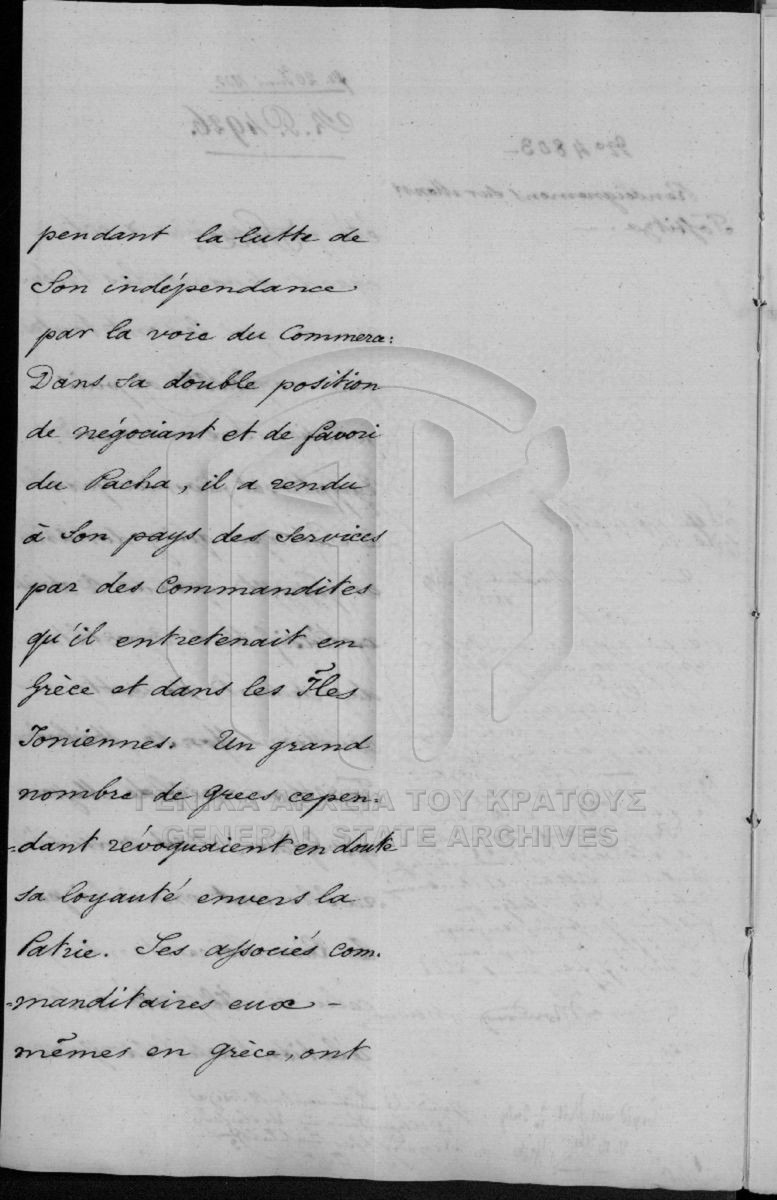 pendant la lutte de
Son indépendance
par la voie du Commerce:
Dans sa double position
de négociant et de favori
du Pacha, il a rendu
à Son pays des Services
par des Commandites
qu'il entretenait en
Grèce et dans les Îles
Ioniennes. Un grand
nombre de grecs cepen-
-dant révoquaient en doute
sa loyauté envers la
Patrie. Ses associés com-
-manditaires eux-
mêmes en Grèce, ont
ΓΕΝΙΚΑ ΑΡΧΕΙΑ ΤΟΥ ΚΡΑΤΟΥΣ
GENERAL STATE ARCHIVES